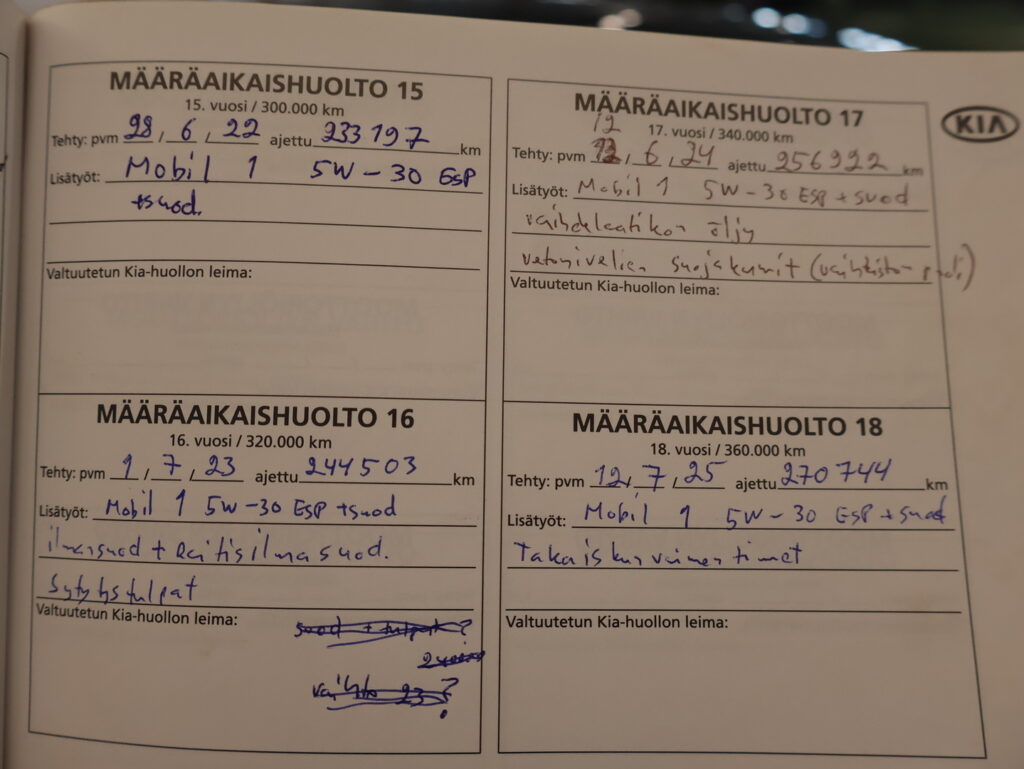 MÄÄRÄAIKAISHUOLTO 15
15. vuosi / 300.000 km
Tehty: pvm 28 , 6 , 22 ajettu 233197 km
Lisätyöt: Mobil 1 5W-30 ESP
+suod.
Valtuutetun Kia-huollon leima:
MÄÄRÄAIKAISHUOLTO 16
16. vuosi / 320.000 km
Tehty: pvm 1 , 7 , 23 ajettu 244503 km
Lisätyöt: Mobil 1 5W-30 ESP +suod
ilmansuod + Raitisilmasuod.
Sytytystulpat
Valtuutetun Kia-huollon leima:
suod + tulpat ?
vaihto 23 ?
KIA
MÄÄRÄAIKAISHUOLTO 17
12
17. vuosi / 340.000 km
Tehty: pvm 12 , 6 , 24 ajettu 256922 km
Lisätyöt: Mobil 1 5W-30 ESP + suod
vaihdelaatikon öljy
vetonivelien suojakumit (vaihteiston puoli)
Valtuutetun Kia-huollon leima:
MÄÄRÄAIKAISHUOLTO 18
18. vuosi / 360.000 km
Tehty: pvm 12 , 7 , 25 ajettu 270744 km
Lisätyöt: Mobil 1 5W-30 ESP + suod
Takaiskunvaimentimet
Valtuutetun Kia-huollon leima: